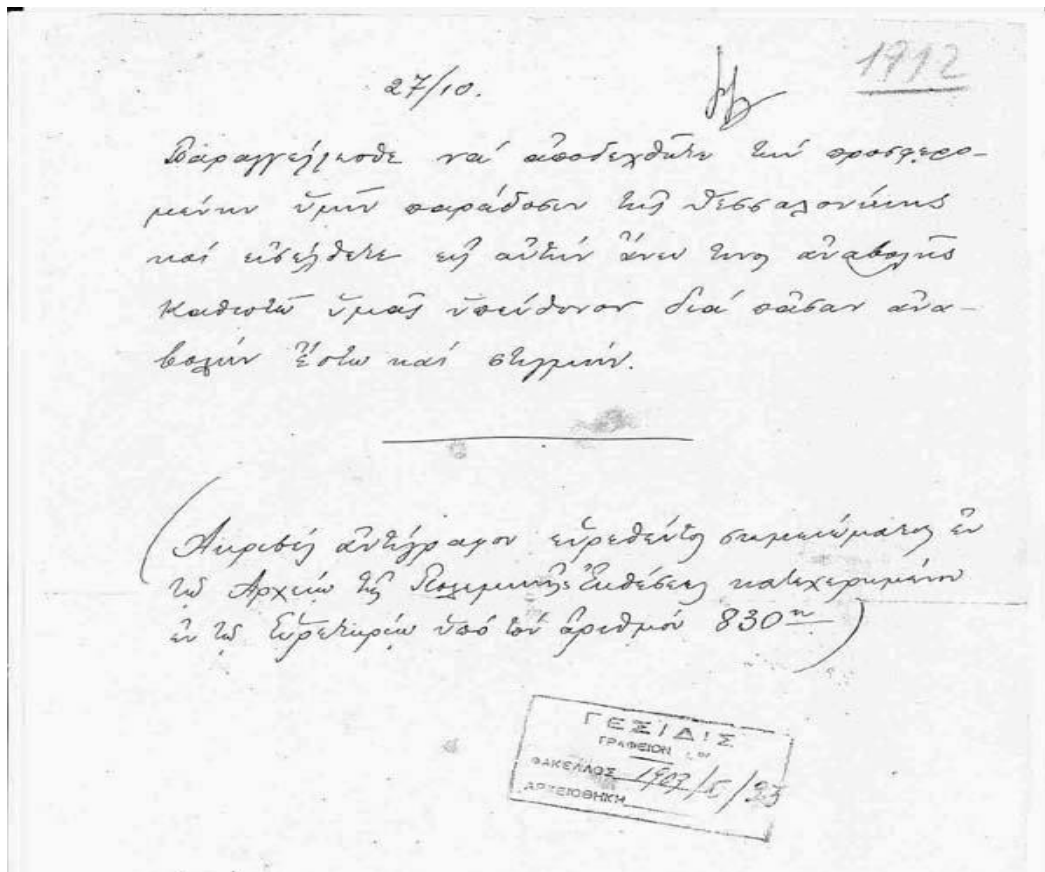 1912
27/10.
Παραγγέλλεσθε νά ἀποδεχθῆτε τήν προσφερο-
μένην ὑμῖν παράδοσιν τῆς Θεσσαλονίκης
καί εἰσέλθετε εἰς αὐτήν ἄνευ τινος ἀναβολῆς
Καθιστῶ ὑμᾶς ὑπεύθυνον διά πᾶσαν ἀνα-
βολήν ἔστω καί στιγμήν.
(Ἀκριβές ἀντίγραφον εὑρεθέντος σημειώματος ἐν
τῷ Ἀρχείῳ τῆς Πολεμικῆς Ἐκθέσεως κατακεχωρημένου
ἐν τῷ Εὑρετηρίῳ ὑπό τόν ἀριθμόν 830)
ΓΕΣ/ΔΙΣ
ΓΡΑΦΕΙΟΝ
ΦΑΚΕΛΛΟΣ
ΑΡΧΕΙΟΘΗΚΗ